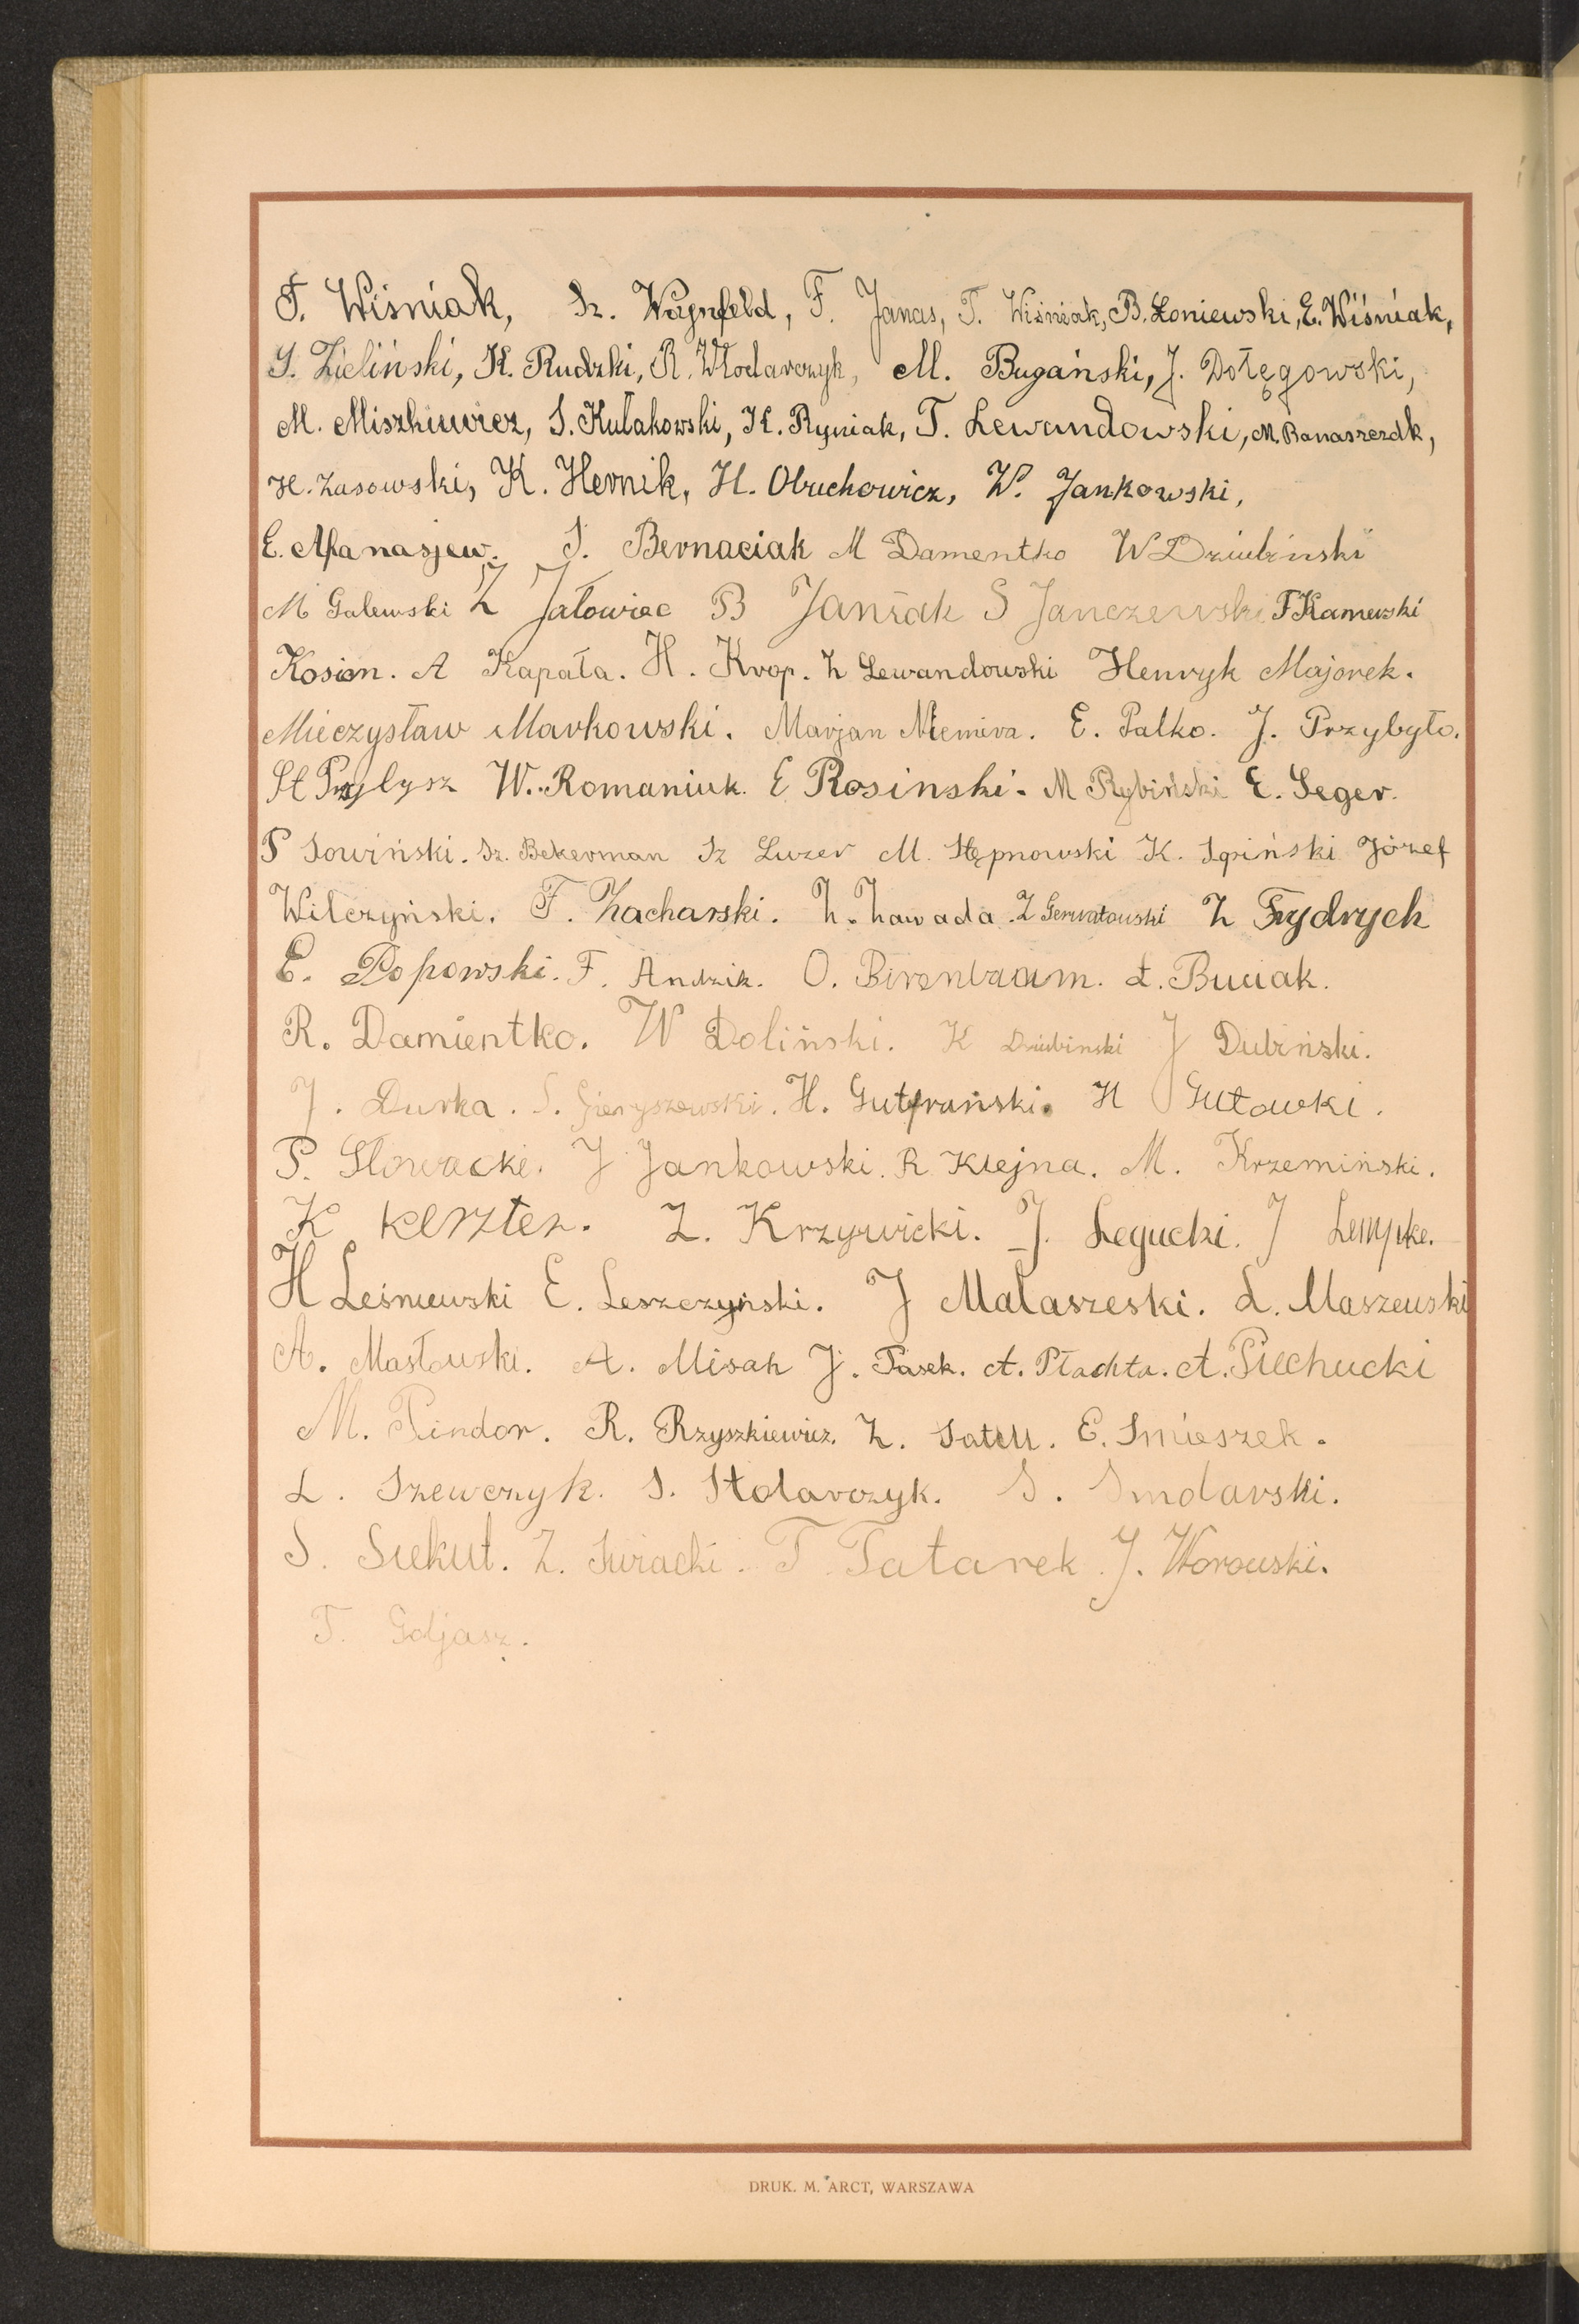 T. Wiśniak, Sz. Wajnfeld, F. Janas, T. Wiśniak, B. Łoniewski, E. Wiśniak,
S. Zieliński, K. Rudzki, R. Włodarczyk, M. Bugański, J. Dołęgowski,
M. Miszkiewicz, S. Kułakowski, K. Ryniak, T. Lewandowski, M. Banaszczak,
H. Zasowski, K. Hernik, H. Obuchowicz, W. Jankowski,
E. Afanasjew. S. Bernaciak M Damentko W Dziubiński
M Galewski Z Jałowiec B Janżak S Janczewski F Kamewski
Kosion. A Kapała. H. Krop. Z Lewandowski Henryk Majorek.
Mieczysław Markowski. Marjan Niemira. E. Palko. J. Przybyło.
St W. Romaniuk. E Rosinski. M Rybiński E. Seger.
P Sowiński. Sz. Bekerman Sz Luzer M. Stępnowski K. Józef
Wilczyński. F. Zacharski. Z. Zawada. Z Gerwatowski Z Frydrych
E. Popowski. F. Andzik. O. Birenbaum. L. Buciak.
R. Damientko. W Doliński. K Dziubinski J Dubiński.
J. Durka. S. Gieryszewski. H. Gutfrański. H Gutowki.
P. Słowacki. J Jankowski. R Klejna. M. Krzemiński.
K Kerszten. Z. Krzywicki. J. Legucki. J Lempke.
H Leśniewski E. Leszczyński. J Małaszeski. L. Maszewski
A. Masłowski. A. Misak J. Pasek. A. Płachta. A. Piechucki
M. Pindor. R. Rzyszkiewicz. Z. E. Smieszek.
L. Szewczyk. S. Stolarczyk. S. Smolarski.
S. Siekut. Z. Swiacki. T Tatarek J. Worowski.
T. Goljasz.
DRUK. M. ARCT, WARSZAWA